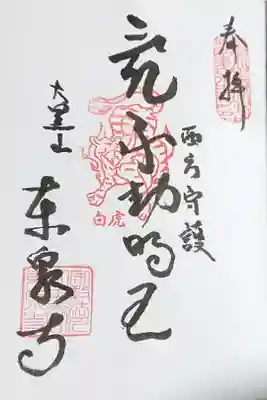 奉拝
西方守護
不動明王
白虎
大黒山
東泉寺